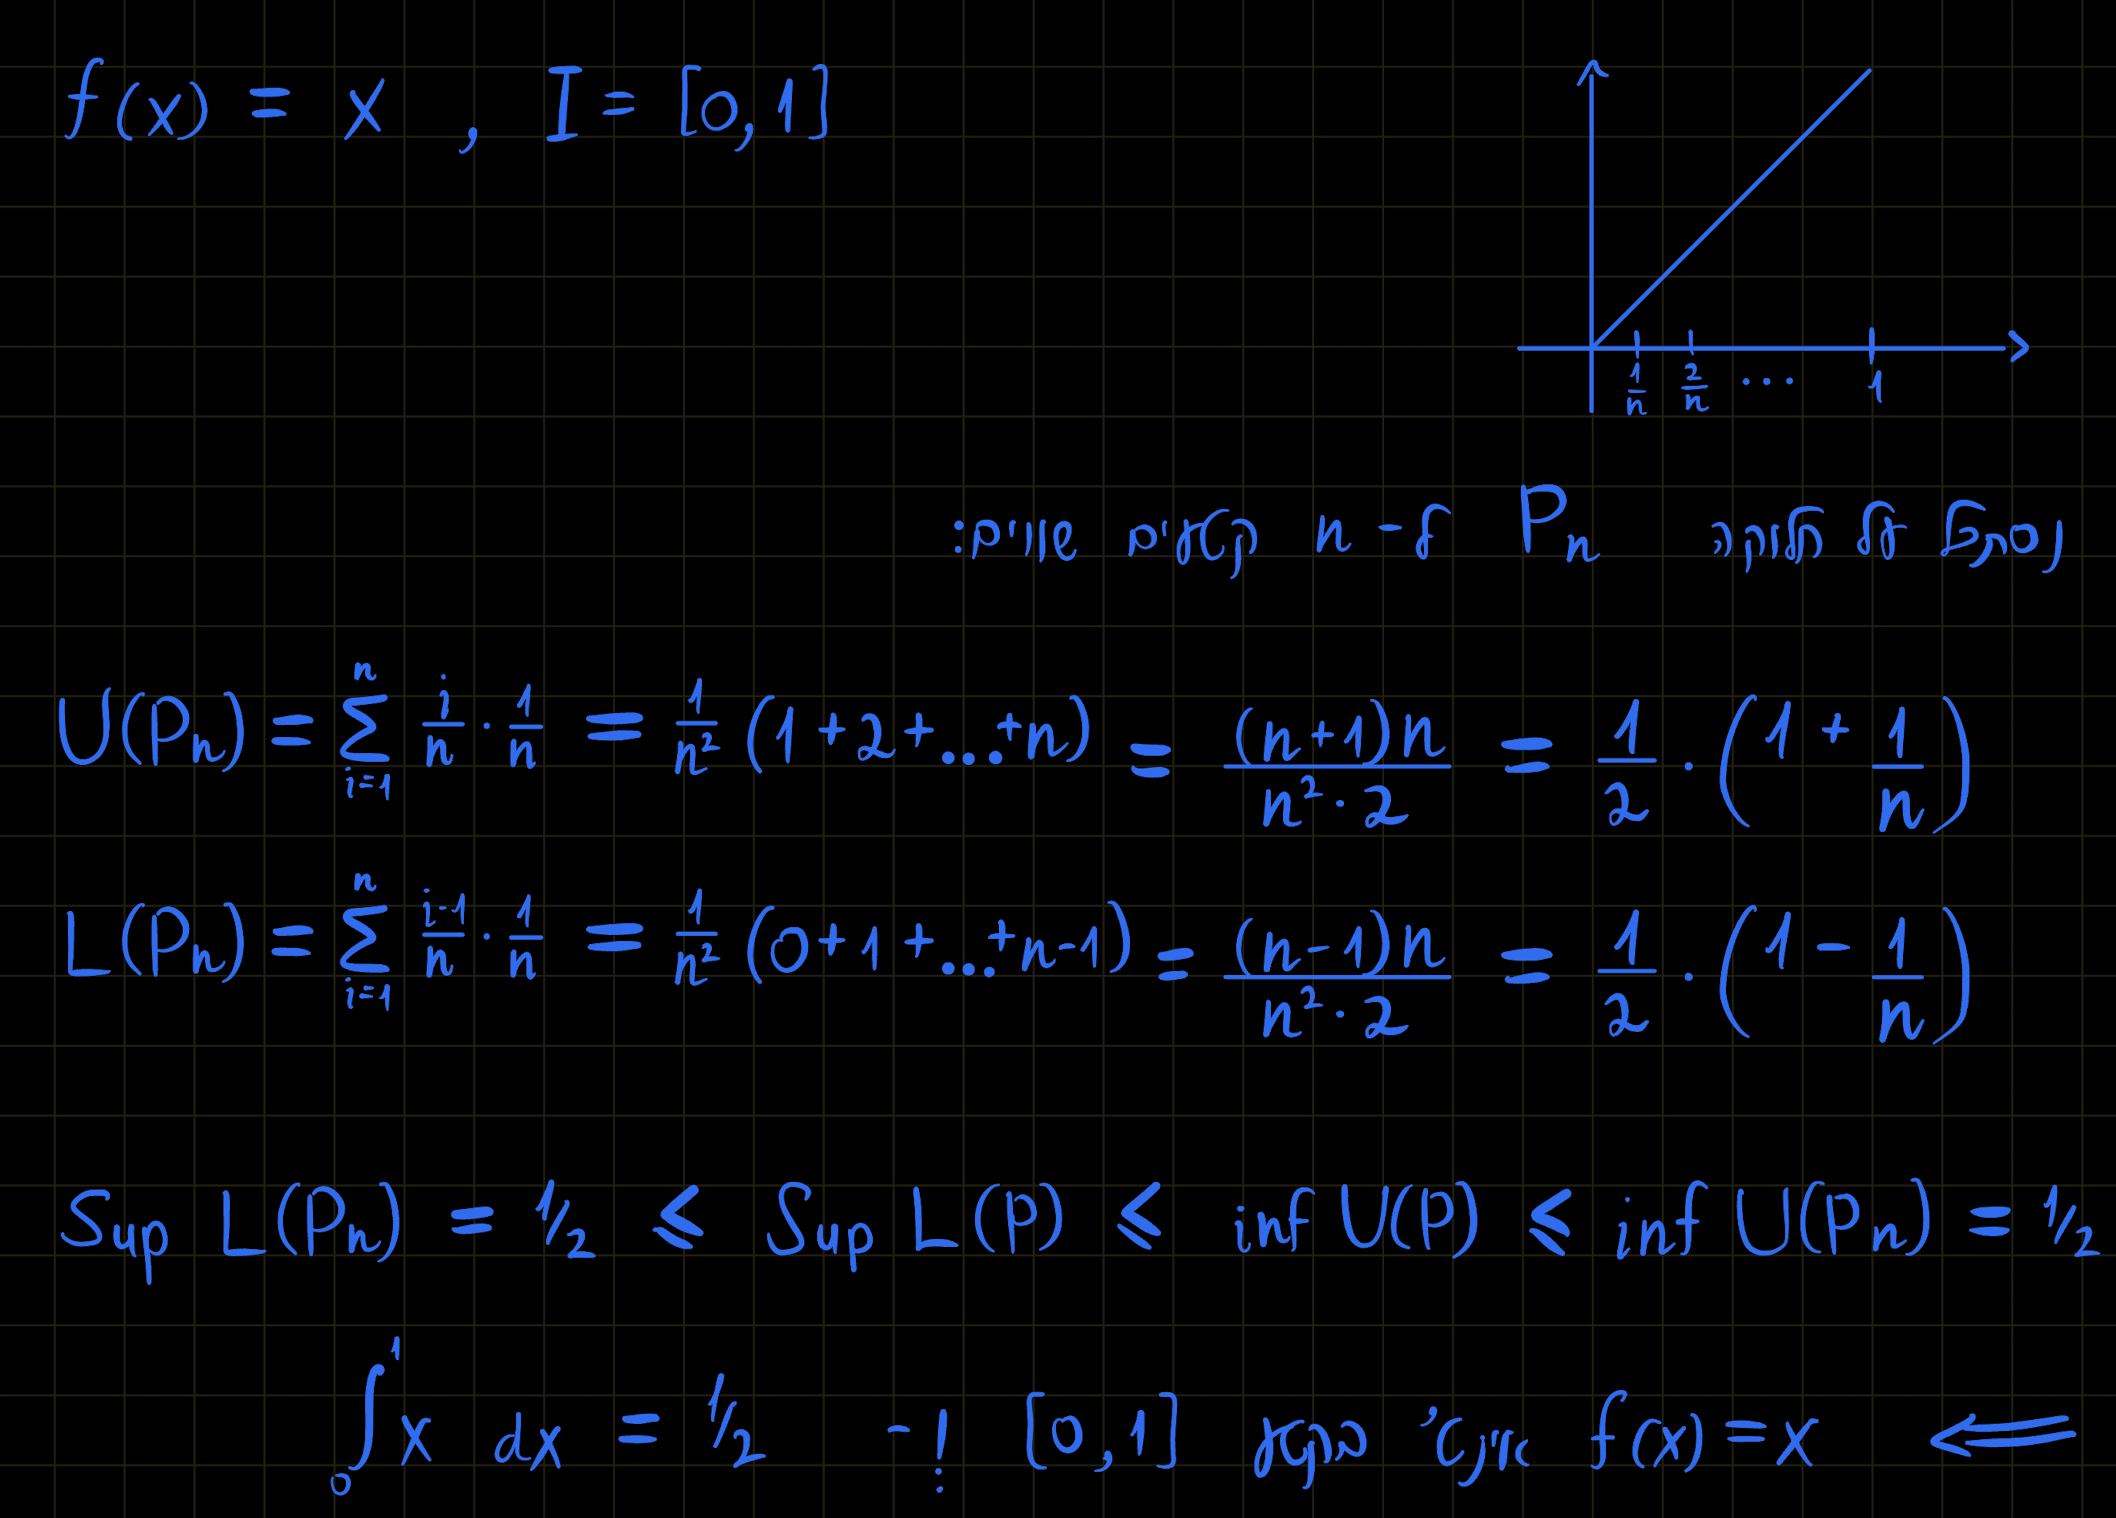 f(x) = x , I = [0,1]
1/n 2/n ... 1
נסתכל על חלוקה Pₙ ל- n קטעים שווים:
U(Pₙ) = ∑ᵢ₌₁ⁿ i/n · 1/n = 1/n² (1+2+...+n) = (n+1)n / n²·2 = 1/2 · (1 + 1/n)
L(Pₙ) = ∑ᵢ₌₁ⁿ i-1/n · 1/n = 1/n² (0+1+...+n-1) = (n-1)n / n²·2 = 1/2 · (1 - 1/n)
Sup L(Pₙ) = 1/2 ≤ Sup L(P) ≤ inf U(P) ≤ inf U(Pₙ) = 1/2
⟸ f(x)=x אינט' בקטע [0,1] ו- ∫₀¹ x dx = 1/2